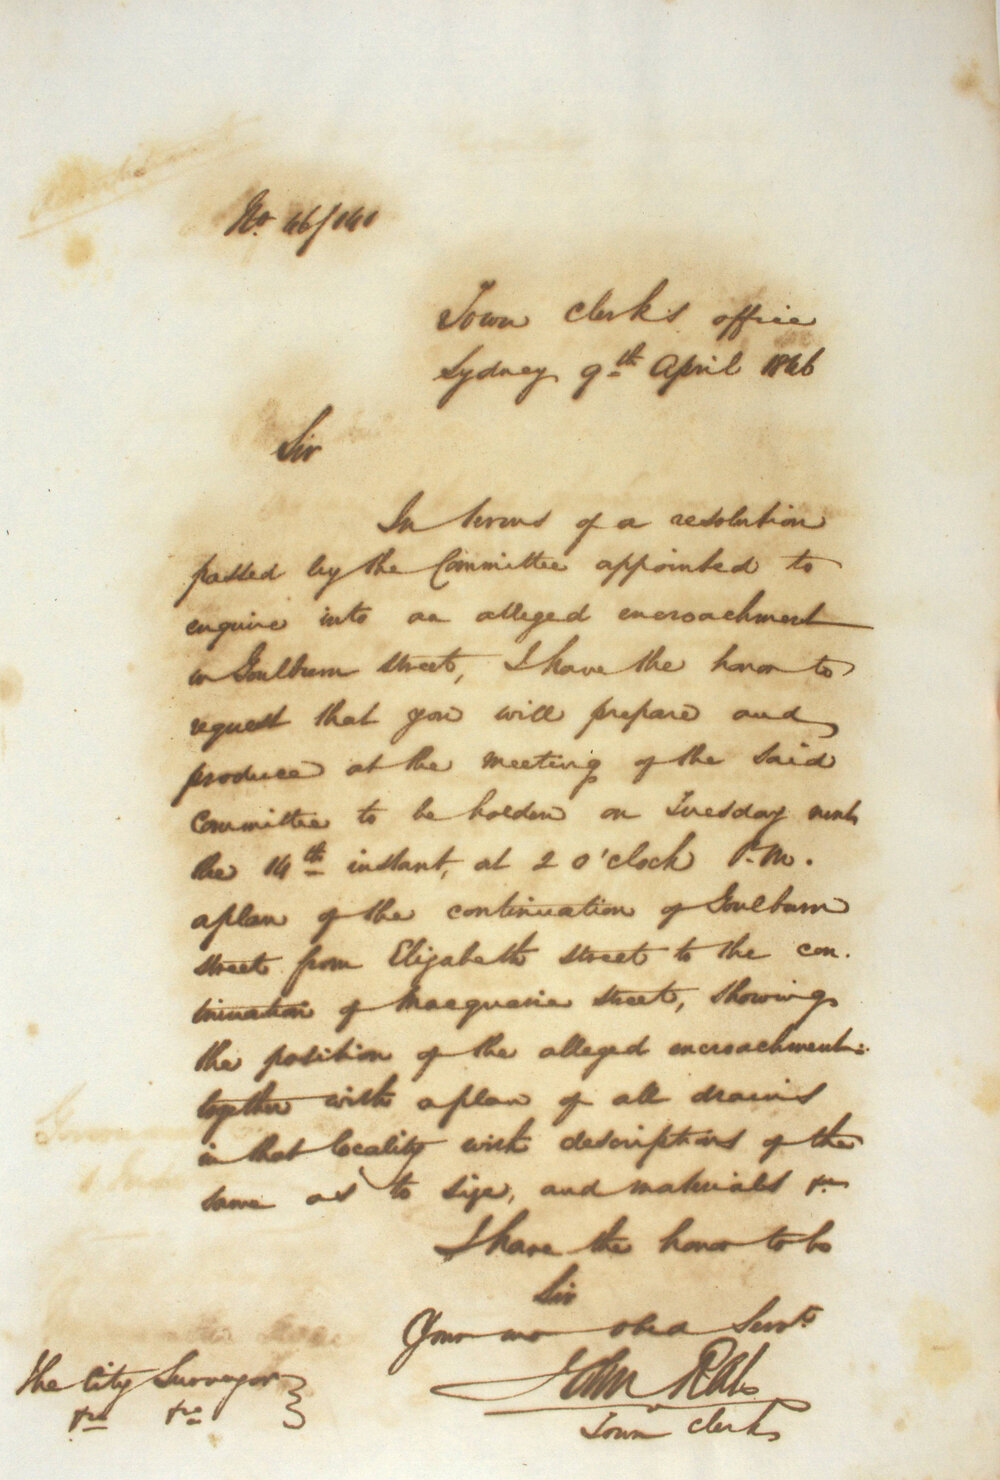 No. 46/141
Town Clerk's Office
Sydney 9th April 1846
Sir
In terms of a resolution
passed by the Committee appointed to
enquire into an alleged encroachment
in Goulburn Street, I have the honor to
request that you will prepare and
produce at the meeting of the said
Committee to be holden on Tuesday next
the 14th instant, at 2 O'clock P.M.
a plan of the continuation of Goulburn
street from Elizabeth street to the con-
tinuation of Macquarie Street, showing
the position of the alleged encroachment:
together with a plan of all drains
in that locality with descriptions of the
same as to size, and materials &c
I have the honor to be
Sir
Your mo obed Servt
John Rae
Town Clerk
The City Surveyor
&c &c